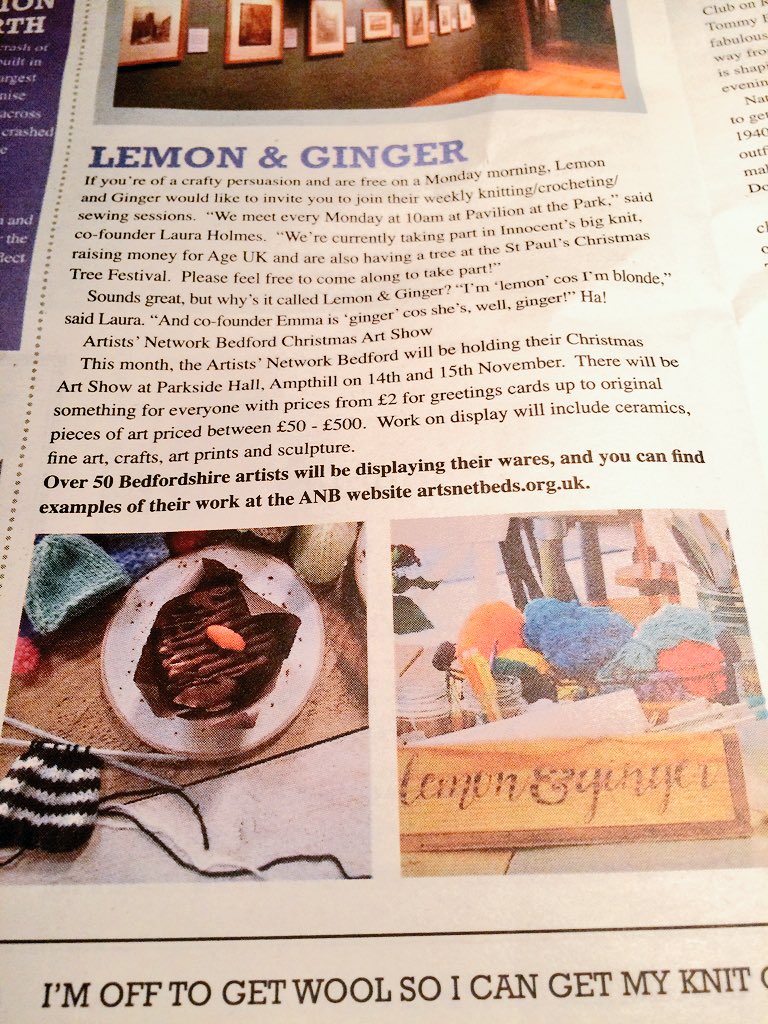 ION
RTH
crash of
built in
argest
nise
across
crashed
e
n and
the
flect
LEMON & GINGER
If you're of a crafty persuasion and are free on a Monday morning, Lemon
and Ginger would like to invite you to join their weekly knitting/crocheting/
sewing sessions. "We meet every Monday at 10am at Pavilion at the Park," said
co-founder Laura Holmes. "We're currently taking part in Innocent's big knit,
raising money for Age UK and are also having a tree at the St Paul's Christmas
Tree Festival. Please feel free to come along to take part!"
Sounds great, but why's it called Lemon & Ginger? "I'm 'lemon' cos I'm blonde,"
said Laura. "And co-founder Emma is 'ginger' cos she's, well, ginger!" Ha!
Artists' Network Bedford Christmas Art Show
This month, the Artists' Network Bedford will be holding their Christmas
Art Show at Parkside Hall, Ampthill on 14th and 15th November. There will be
something for everyone with prices from £2 for greetings cards up to original
pieces of art priced between £50 - £500. Work on display will include ceramics,
fine art, crafts, art prints and sculpture.
Over 50 Bedfordshire artists will be displaying their wares, and you can find
examples of their work at the ANB website artsnetbeds.org.uk.
lemon & ginger
I'M OFF TO GET WOOL SO I CAN GET MY KNIT
Club on
Tommy
fabulous
way fro
is shapi
evenin
Na
to ge
1940
outf
mal
Do